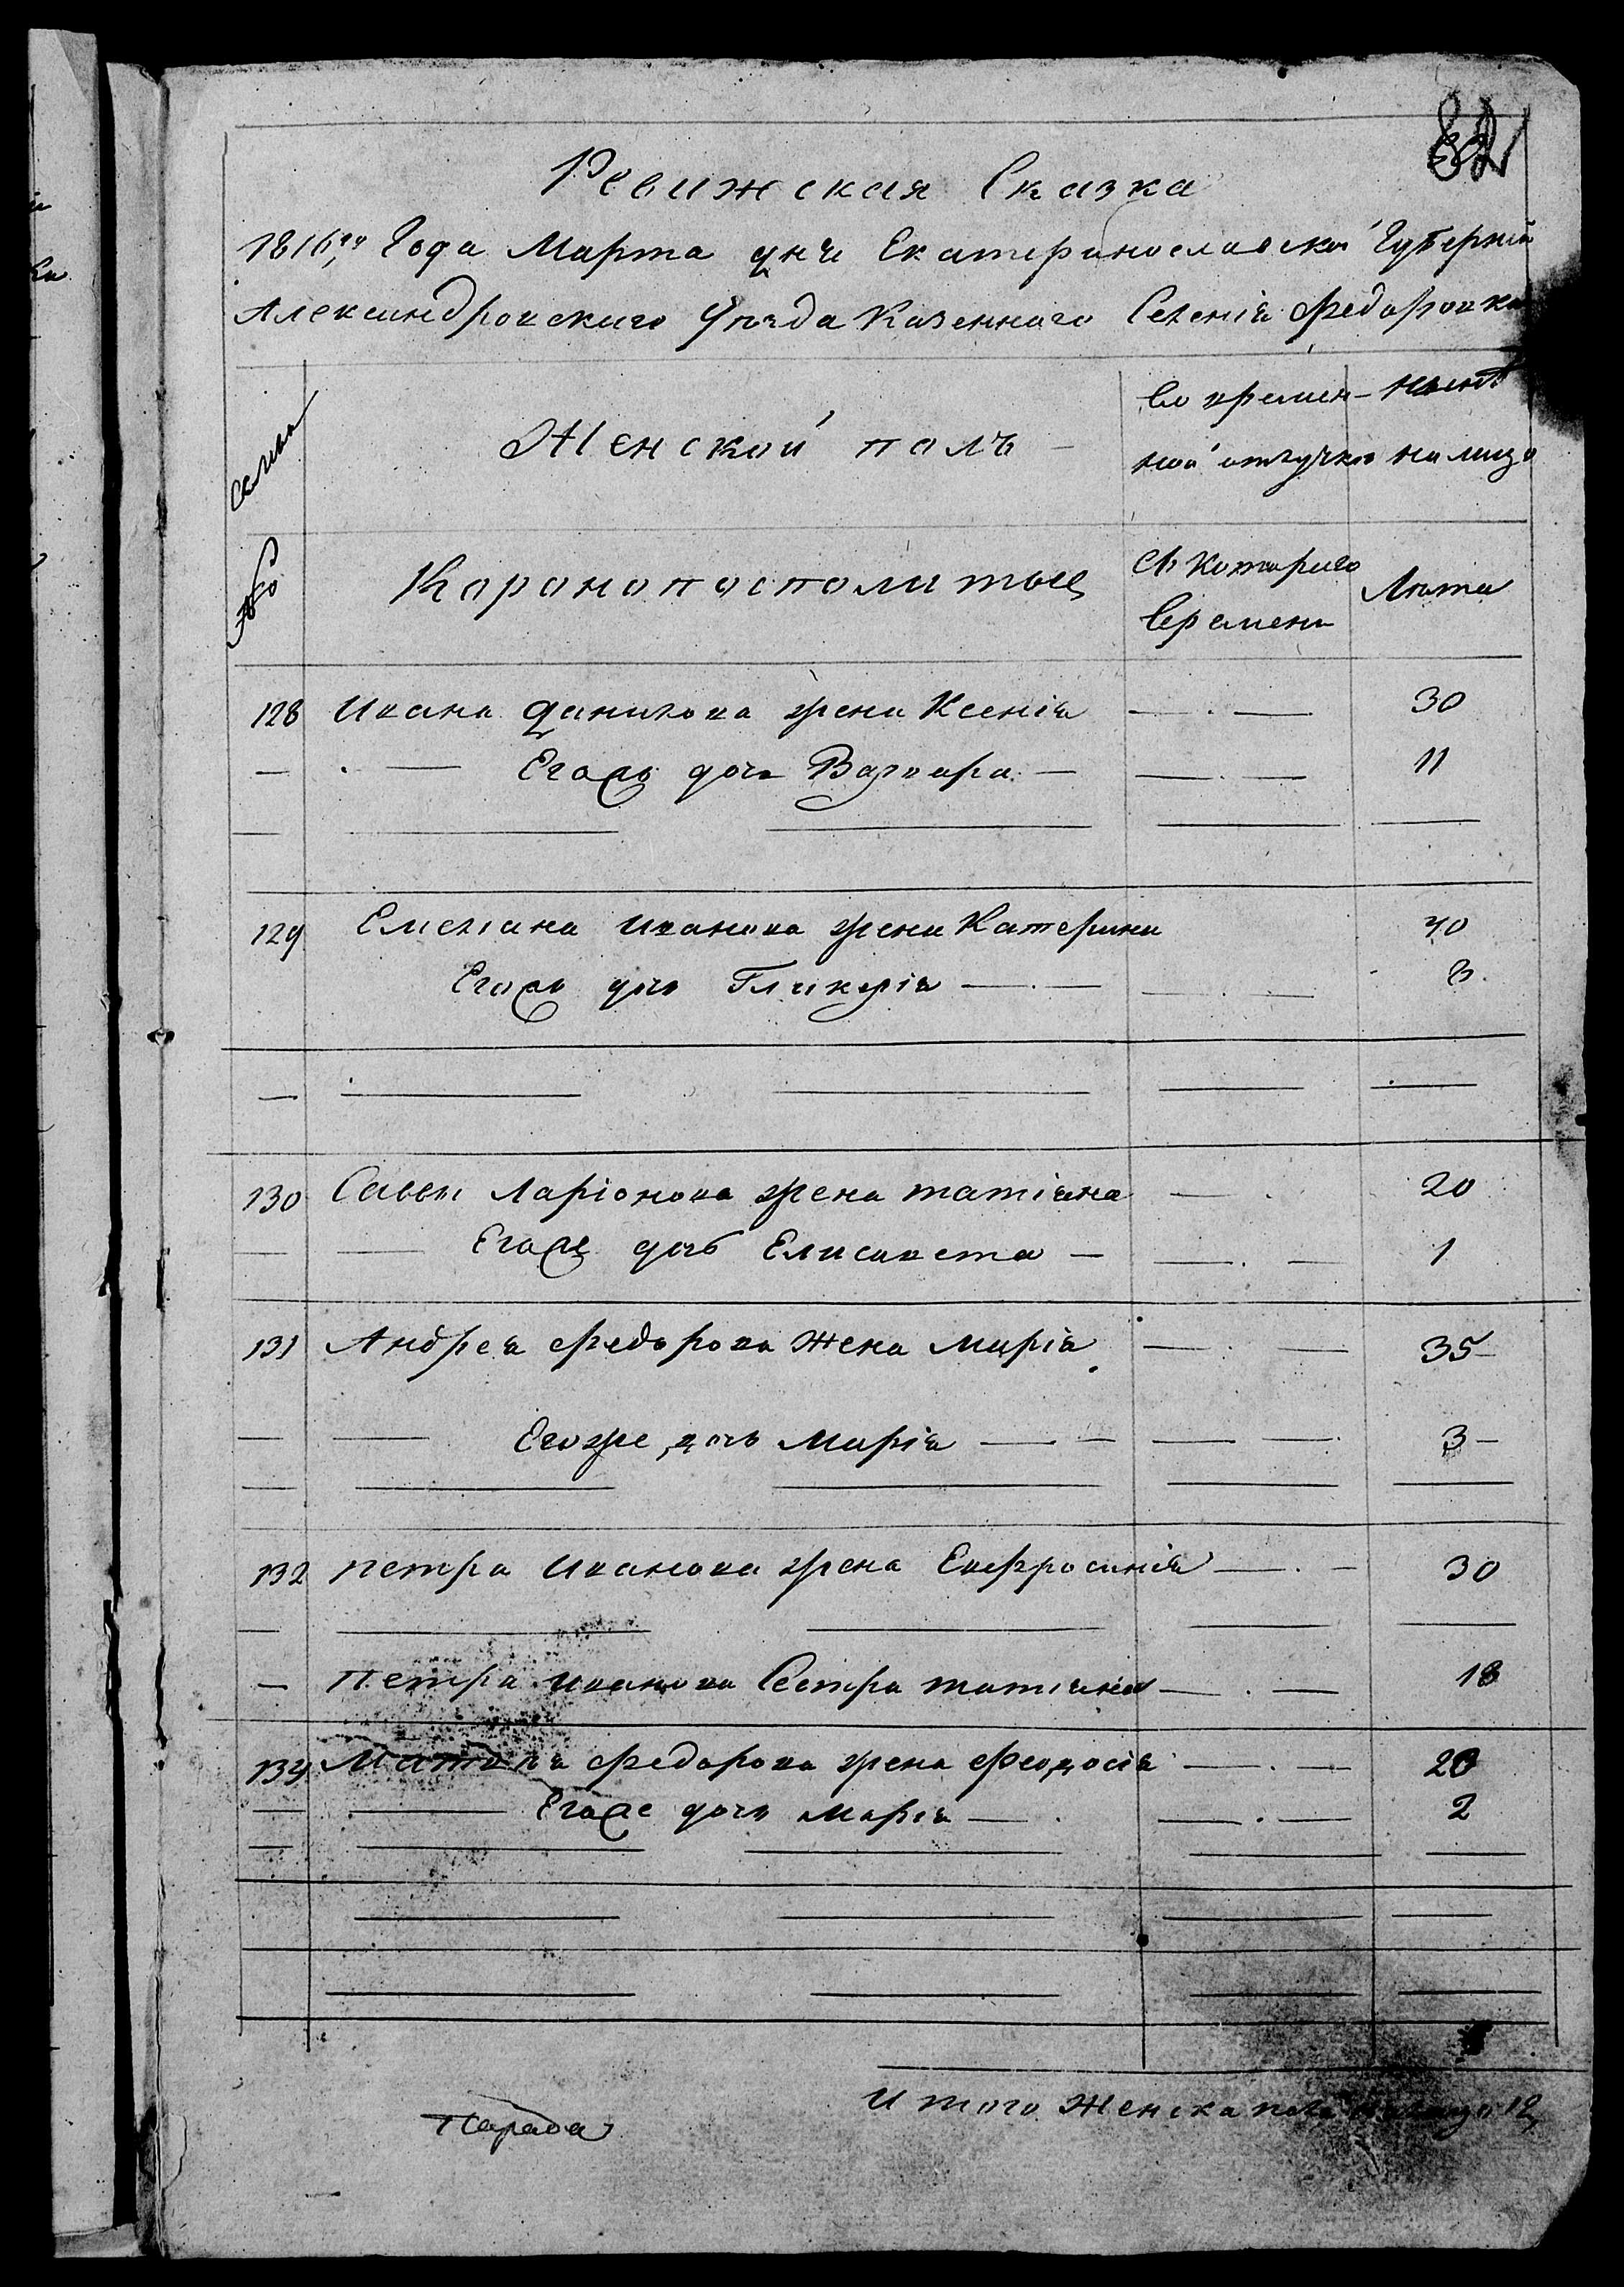 82
Ревижская Сказка
1816го Года Марта дня Екатеринославской Губерніи
Александровскаго Уезда Казеннаго Селенія Федоровки
Семьи
Женской полъ
Во времен- Ныне
ной отлучке на лицо
Коронопосполитые
Съ котораго Лета
Времени
128 Ивана Данилова жена Ксенія 30
— Егоже дочь Варвара — 11
129 Емелiана Иванова жена Катерина 40
Егоже дочь Гликерія — 8
130 Савы Ларіонова жена татіяна — 20
— Егоже дочь Елисавета — 1
131 Андрея Федорова Жена Марія — 35
— Егоже дочь Марія — 3
132 петра Иванова жена Евфросинія — 30
— Петра Иванова Сестра татіяна — 18
134 Матвея Федорова жена Феодосія — 20
— Егоже дочь Марія — 2
Итого Женска пола на лицо 12